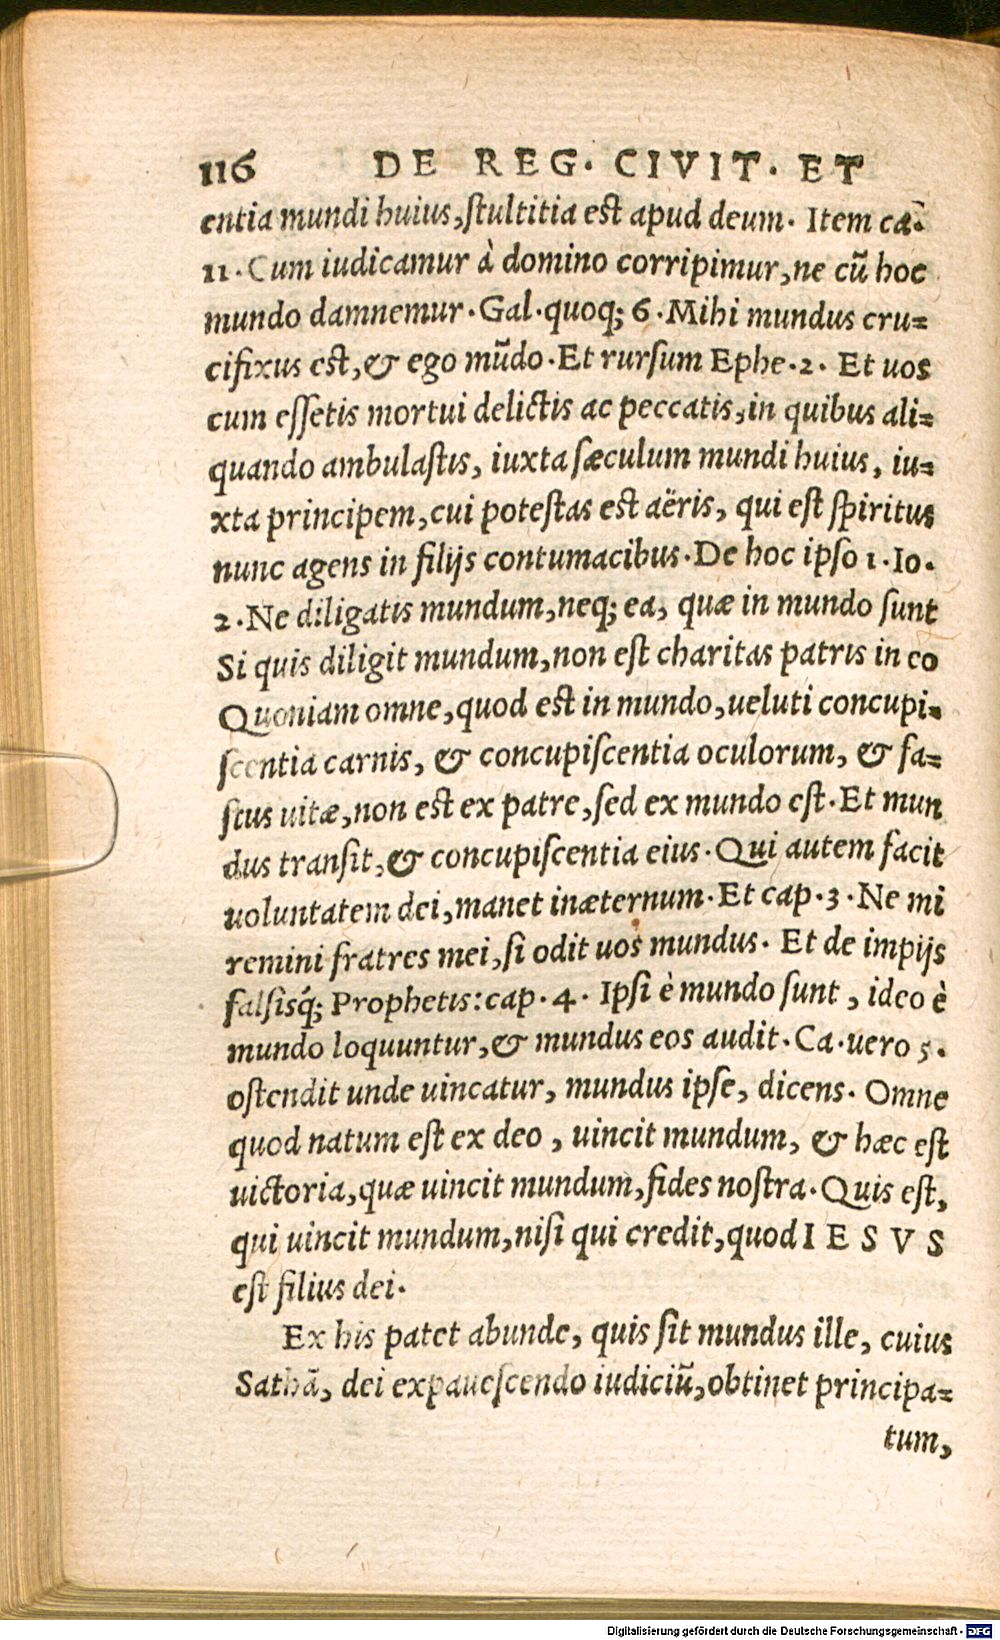 116 DE REG. CIVIT. ET
entia mundi huius, stultitia est apud deum. Item ca.
11. Cum iudicamur à domino corripimur, ne cũ hoc
mundo damnemur. Gal. quoq; 6. Mihi mundus cru=
cifixus est, & ego mũdo. Et rursum Ephe. 2. Et uos
cum essetis mortui delictis ac peccatis, in quibus ali=
quando ambulastis, iuxta sæculum mundi huius, iu=
xta principem, cui potestas est aëris, qui est spiritus
nunc agens in filijs contumacibus. De hoc ipso 1. Io.
2. Ne diligatis mundum, neq; ea, quæ in mundo sunt
Si quis diligit mundum, non est charitas patris in eo
Quoniam omne, quod est in mundo, ueluti concupi=
scentia carnis, & concupiscentia oculorum, & fa=
stus uitæ, non est ex patre, sed ex mundo est. Et mun
dus transit, & concupiscentia eius. Qui autem facit
uoluntatem dei, manet inæternum. Et cap. 3. Ne mi
remini fratres mei, si odit uos mundus. Et de impijs
falsisq́; Prophetis: cap. 4. Ipsi è mundo sunt, ideo è
mundo loquuntur, & mundus eos audit. Ca. uero 5.
ostendit unde uincatur, mundus ipse, dicens. Omne
quod natum est ex deo, uincit mundum, & hæc est
uictoria, quæ uincit mundum, fides nostra. Quis est,
qui uincit mundum, nisi qui credit, quod IESVS
est filius dei.
Ex his patet abunde, quis sit mundus ille, cuius
Sathã, dei expauescendo iudiciũ, obtinet principa=
tum,
Digitalisierung gefördert durch die Deutsche Forschungsgemeinschaft - DFG